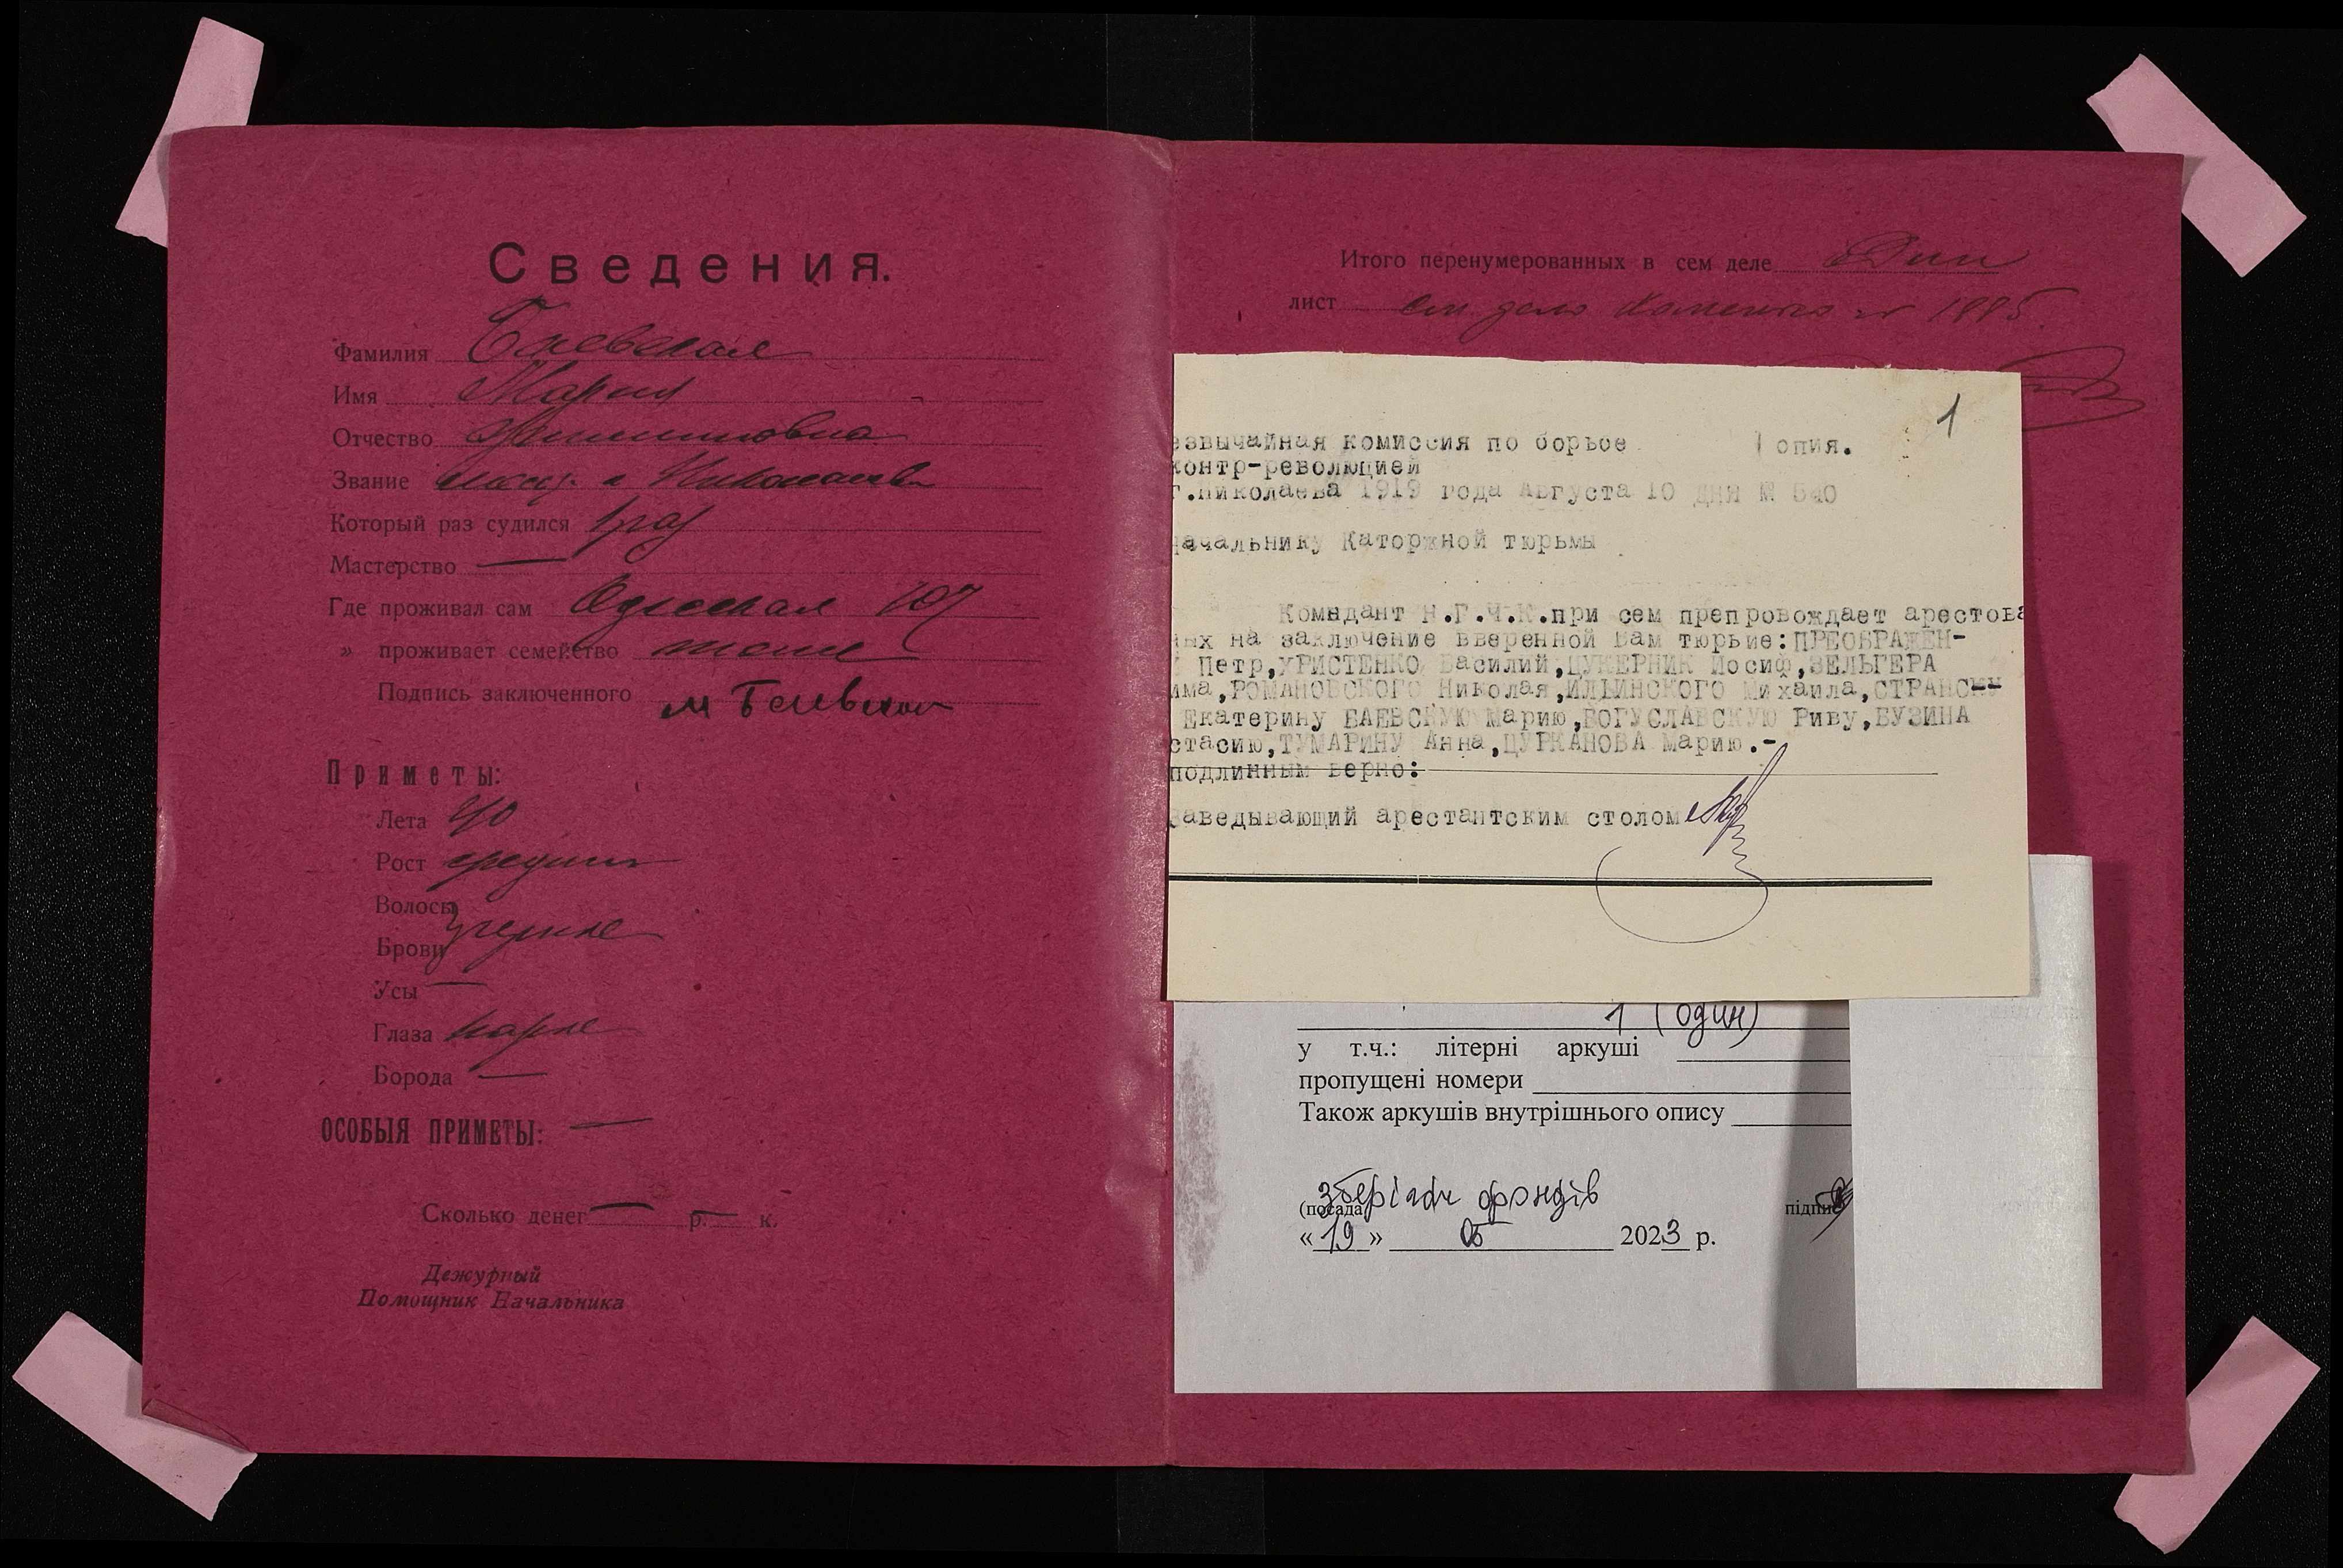 Сведения.
Фамилия
Имя Мария
Отчество
Звание г Николаева
Который раз судился 1 раз
Мастерство —
Где проживал сам Одесская 107
» проживает семейство
Подпись заключенного М
Приметы:
Лета 40
Рост средний
Волосы
Брови черные
Усы —
Глаза карие
Борода —
ОСОБЫЯ ПРИМЕТЫ: —
Сколько денег — р. — к.
Дежурный
Помощник Начальника
Итого перенумерованных в сем деле Один
лист см дело
1
езвычайная комиссия по борьбе опия.
контр-революцией
г.Николаева 1919 года Августа 10 дня № 540
ачальнику Каторжной тюрьмы
Комндант Н.Г.Ч.К.при сем препровождает арестова
ных на заключение вверенной Вам тюрьие:ПРЕОБРАЖЕН-
Петр,ХРИСТЕНКО Василий,ЦУКЕРНИК Иосиф,ЗЕЛЬГЕРА
има,РОМАНОВСКОГО Николая,ИЛЬИНСКОГО Михаила,СТРАНСК
Екатерину БАЕВСКУЮ Марию,БОГУСЛАВСКУЮ Риву,БУЗИНА
стасию,ТУМАРИНУ Анна,ЦУРКАНОВА Марию.-
подлинным верно:
Заведывающий арестантским столом
1 (один)
у т.ч.: літерні аркуші
пропущені номери
Також аркушів внутрішнього опису
зберігач фондів
(посада) підпис
« 19 » 05 2023 р.